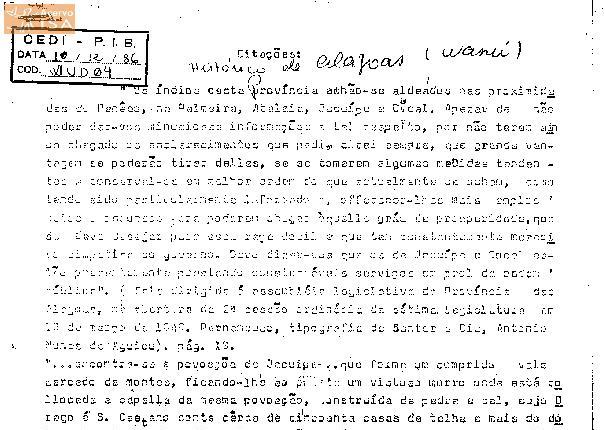 acervo
ISA
CEDI - P.I.B.
DATA 10/12/86
COD. 04
Citações:
Histórico de Alagoas (Wanú)
"Os índios desta Província achão-se aldeados nas proximida
des de na Palmeira, Atalaia, Jacuípe e Cocal. Apezar de não
poder dar-vos minuciosas informações a tal respeito, por não terem ain
da chegado os esclarecimentos que pedi, direi sempre, que grande van-
tagem se poderão tirar delles, se se tomarem algumas medidas tenden-
tes a conserval-os em melhor ordem do que actualmente se achem,
tendo sido particularmente informado offerecer-lhes mais amplos
e recursos para poderem chegar àquelle gráu de prosperidade, que
se deve desejar para esta raça docil e que tem constantemente mereci
do simpatias do governo. Devo dizer-vos que os de Jacuípe e Cocal es-
tão prestando consideráveis serviços em prol da ordem
pública". (Fala dirigida à assembléia legislativa da Província das
Alagoas, na abertura da 2ª sessão ordinária da sétima legislatura em
de março de Pernambuco, tipografia de Santos e Cia, Antonio
Nunes de Aguiar). pág. 19.
"...encontra-se a povoação do Jacuipe...que forma um comprido vale
cercado de montes, ficando-lhe ao um vistoso morro onde está co
llocada a capella da mesma povoação, construída de pedra e cal, cujo O
rago é S. Caetano conta cêrca de cincoenta casas de telha e mais de du